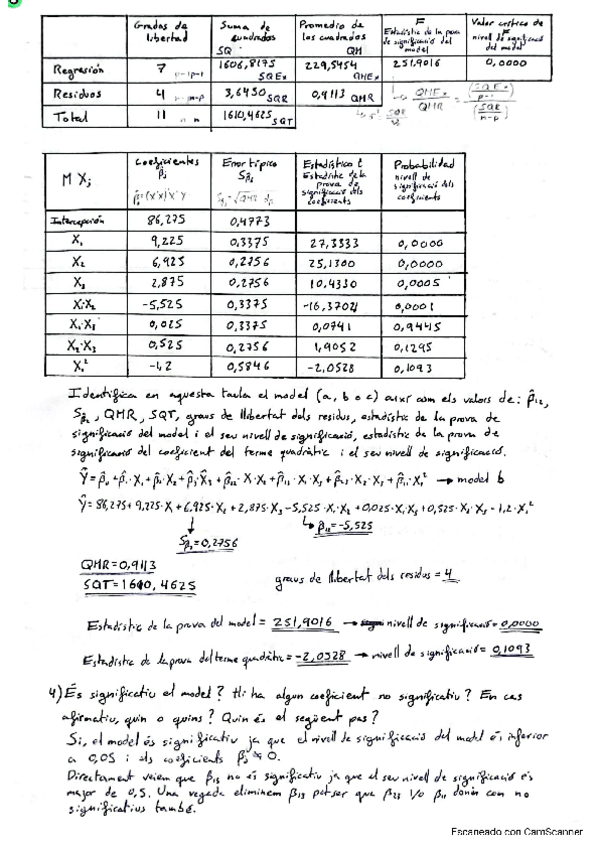 Grados de libertad | Suma de cuadrados SQ | Promedio de los cuadrados QM | F Estadístic de la prova de significació del model | Valor crítico de F nivell de significació del model
Regresión | 7 | 1606,8175 SQEx | 229,5454 QMEx | 251,9016 | 0,0000
Residuos | 4 n-p | 3,6450 SQR | 0,9113 QMR | QMEx / QMR = (SQEx / p-1) / (SQR / n-p)
Total | 11 | 1610,4625 SQT
M Xj | Coeficientes β̂j | Error típico Sβ̂j | Estadístico t Estadístic de la prova de significació dels coeficients | Probabilidad nivell de significació dels coeficients
Intercepción | 86,275 | 0,4773
X₁ | 9,225 | 0,3375 | 27,3333 | 0,0000
X₂ | 6,925 | 0,2756 | 25,1300 | 0,0000
X₃ | 2,875 | 0,2756 | 10,4330 | 0,0005
X₁·X₂ | -5,525 | 0,3375 | -16,3704 | 0,0001
X₁·X₃ | 0,025 | 0,3375 | 0,0741 | 0,9445
X₂·X₃ | 0,525 | 0,2756 | 1,9052 | 0,1295
X₁² | -1,2 | 0,5846 | -2,0528 | 0,1093
Identifica en aquesta taula el model (a, b o c) així com els valors de: β̂₁₂,
Sβ̂₂, QMR, SQT, graus de llibertat dels residus, estadístic de la prova de
significació del model i el seu nivell de significació, estadístic de la prova de
significació del coeficient del terme quadràtic i el seu nivell de significació.
→ model b
Ŷ = 86,275 + 9,225·X₁ + 6,925·X₂ + 2,875·X₃ - 5,525·X₁·X₂ + 0,025·X₁·X₃ + 0,525·X₂·X₃ - 1,2·X₁²
Sβ̂₂ = 0,2756
β̂₁₂ = -5,525
QMR = 0,9113
SQT = 1610,4625
graus de llibertat dels residus = 4
Estadístic de la prova del model = 251,9016 → nivell de significació = 0,0000
Estadístic de la prova del terme quadràtic = -2,0528 → nivell de significació = 0,1093
4) És significatiu el model? Hi ha algun coeficient no significatiu? En cas
afirmatiu, quin o quins? Quin és el següent pas?
Si, el model és significatiu ja que el nivell de significació del model és inferior
a 0,05 i els coeficients βj ≠ 0.
Directament veiem que β₁₃ no és significatiu ja que el seu nivell de significació és
major de 0,5. Una vegada eliminem β₁₃ pot ser que β₂₃ i/o β₁₁ donin com no
significatius també.
Escaneado con CamScanner